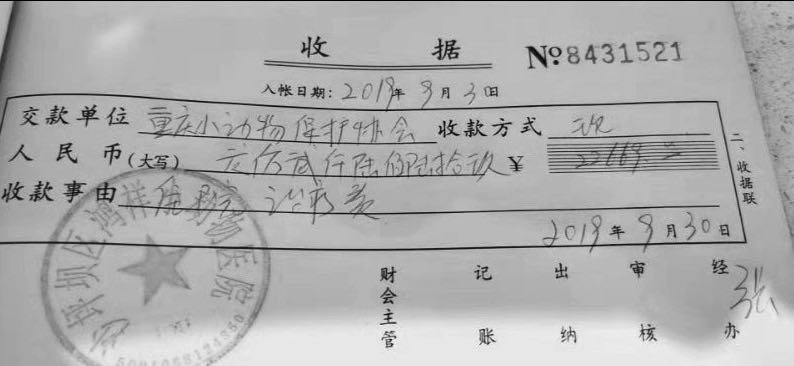 收 据 №8431521
入帐日期：2019年9月30日
交款单位 重庆小动物保护协会 收款方式
人民币(大写) 贰仟陆佰陆拾 ¥ 22669
收款事由 治疗费
2019年9月30日
二、收据联
财会主管 记账 出纳 审核 经办 张
坝区鸿祥 动物医院